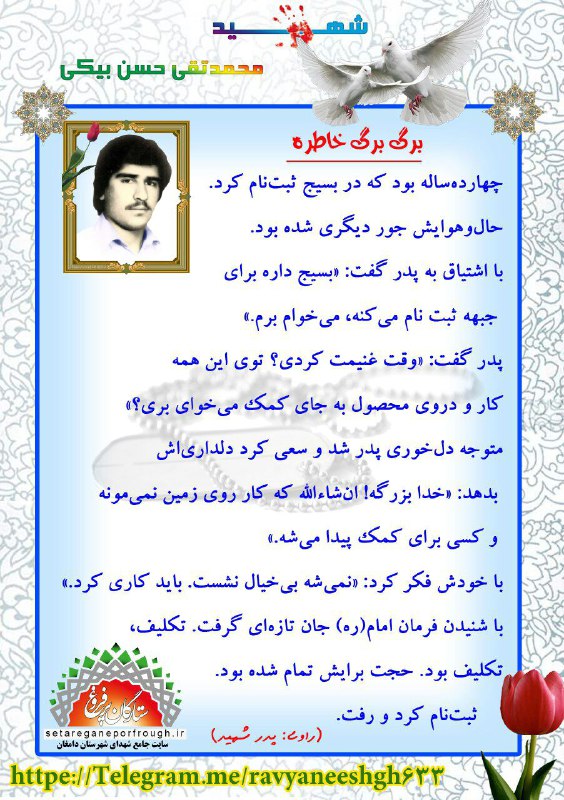 شهید
محمدتقی حسن بیکی
برگ برگ خاطره
چهارده‌ساله بود که در بسیج ثبت‌نام کرد.
حال‌وهوایش جور دیگری شده بود.
با اشتیاق به پدر گفت: «بسیج داره برای
جبهه ثبت نام می‌کنه، می‌خوام برم.»
پدر گفت: «وقت غنیمت کردی؟ توی این همه
کار و دروی محصول به جای کمک می‌خوای بری؟»
متوجه دل‌خوری پدر شد و سعی کرد دلداری‌اش
بدهد: «خدا بزرگه! ان‌شاءالله که کار روی زمین نمی‌مونه
و کسی برای کمک پیدا می‌شه.»
با خودش فکر کرد: «نمی‌شه بی‌خیال نشست. باید کاری کرد.»
با شنیدن فرمان امام(ره) جان تازه‌ای گرفت. تکلیف،
تکلیف بود. حجت برایش تمام شده بود.
ثبت‌نام کرد و رفت.
(راوی: پدر شهید)
ستارگان پرفروغ
setareganeporfrough.ir
سایت جامع شهدای شهرستان دامغان
https://Telegram.me/ravyaneeshgh۶۳۳